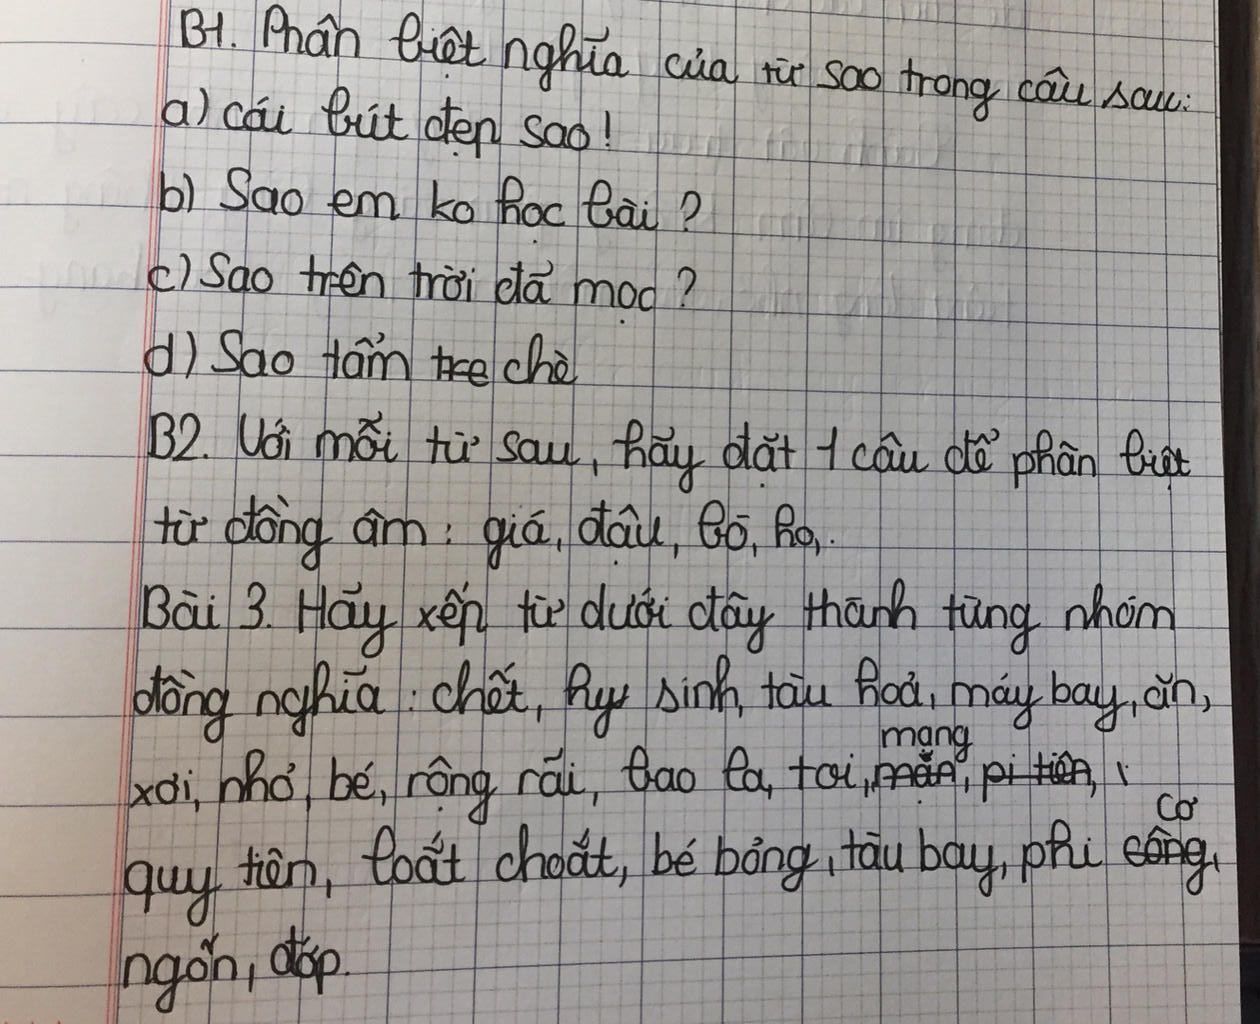 B1. Phân biệt nghĩa của từ sao trong câu sau:
a) cái bút đẹp sao!
b) Sao em ko học bài?
c) Sao trên trời đã mọc?
d) Sao tẩm chè
B2. Với mỗi từ sau, hãy đặt 1 câu để phân biệt
từ đồng âm: giá, đậu, bò, ho,.
Bài 3. Hãy xếp từ dưới đây thành từng nhóm
đồng nghĩa: chết, hy sinh, tàu hoả, máy bay, ăn,
xơi, nhỏ, bé, rộng rãi, bao la, toi, mạng,
quy tiên, loắt choắt, bé bỏng, tàu bay, phi cơ,
ngốn, đớp.